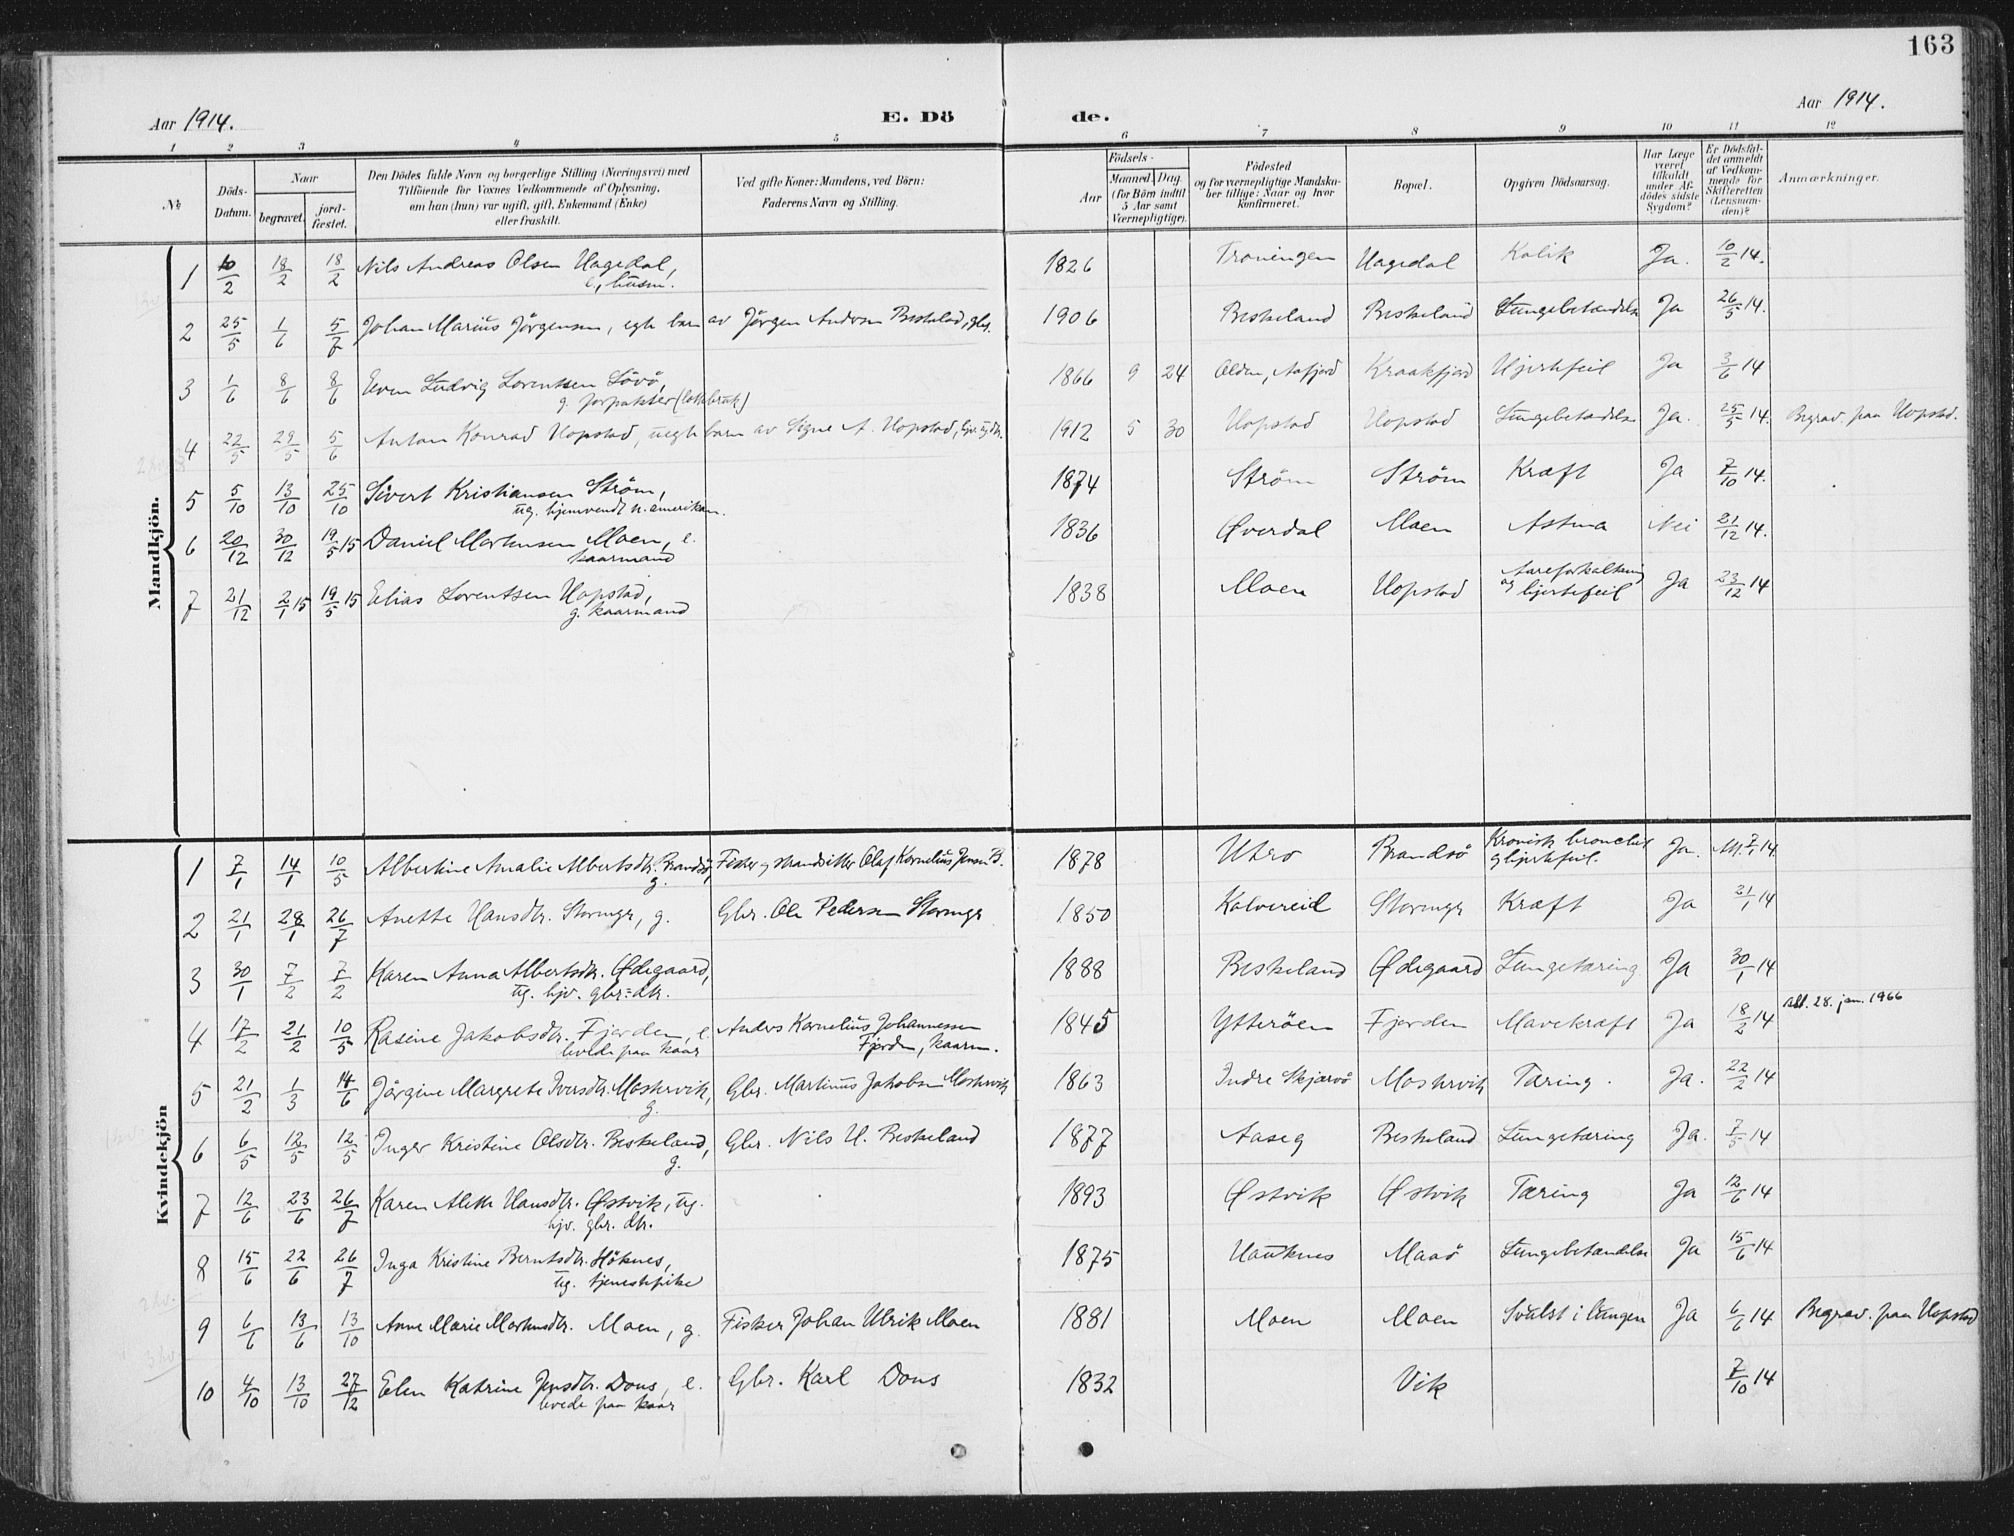 163
Aar 1914.
E. Dö de.
Aar 1914.
1 2 3 4 5 6 7 8 9 10 11 12
№
Döds-Datum.
Naar
begravet.
jord-fæstet.
Den Dödes fulde Navn og borgerlige Stilling (Næringsvei) med
Tilföiende for Voxnes Vedkommende af Oplysning,
om han (hun) var ugift, gift, Enkemand (Enke)
eller fraskilt.
Ved gifte Koner: Mandens, ved Börn:
Faderens Navn og Stilling.
Födsels-
Aar
Maaned.
Dag.
(for Börn indtil
5 Aar samt
Værnepligtige).
Födested
og for værnepligtige Mandska-
ber tillige: Naar og hvor
konfirmeret.
Bopæl.
Opgiven Dödsaarsag.
Har Læge
været
tilkaldt
under Af-
dödes sidste
Sygdom?
Er Dödsfal-
det anmeldt
af Vedkom-
mende for
Skifteretten
(Lensman-
den)?
Anmærkninger.
Mandkjön.
1 10/2 18/2 18/2 Nils Andreas Olsen Hagedal, 1826 Troningen Hagedal Kolik Ja. 10/2 14.
e, husm.
2 25/5 1/6 5/7 Johan Marius Jörgensen, egte barn av Jörgen Andersn Beskeland, gbr. 1906 Beskeland Beskeland Lungebetændelse Ja 26/5 14.
3 1/6 8/6 8/6 Even Ludvig Lorentsen Lövö, 1866 9 24 Olden, Aafjord Kraakfjord Hjertefeil Ja 3/6 14
g. forpakter (lottebruk)
4 22/5 29/5 5/6 Anton Konrad Hopstad, uegte barn av Signe A. Hopstad, 1912 5 30 Hopstad Hopstad Lungebetændelse Ja. 25/5 14. Begrav. paa Hopstad.
5 5/10 13/10 25/10 Sivert Kristiansen Ström, 1874 Ström Ström Kræft Ja 7/10 14.
ug. hjemvendt n. amerikan.
6 20/12 30/12 19/5 15 Daniel Martensen Moen, e. 1836 Överdal Moen Astma Nei 21/12 14.
kaarmand
7 21/12 2/1 15 19/5 15 Elias Lorentsen Hopstad, 1838 Moen Hopstad Aareforkalkning og hjertefeil Ja 23/12 14
g. kaarmand
Kvindekjön
1 7/1 14/1 10/5 Albertine Amalie Albertsdtr. Brandsö, Fisker og strandsitter Olaf Kornelius Jensen B. 1878 Utro Brandsö Kronisk bronchit og hjertefeil. Ja. 7/1 14
g.
2 21/1 28/1 26/7 Anette Hansdtr. Storingr, g. Gbr. Ole Pedersen Storingr 1850 Kalvereid Storingr Kræft Ja 21/1 14
3 30/1 7/2 7/2 Karen Anna Albertsdtr. Ödegaard, 1888 Beskeland Ödegaard Lungetæring Ja 30/1 14
ug. hjv. gbr.=dtr.
4 17/2 21/2 10/5 Rasine Jakobsdtr. Fjorden, e. Anders Kornelius Johannessen 1845 Ytteröen Fjorden Mavekræft Ja 18/2 14 28. jan. 1966
levede paa kaar Fjorden, kaarm.
5 21/2 1/3 14/6 Jörgine Margrete Iversdtr. Mostervik, Gbr. Martinus Jakobsen Mostervik 1863 Indre Skjærvö Mostervik Tæring. Ja. 22/2 14
g.
6 6/5 12/5 12/5 Inger Kristine Olsdtr. Beskeland, Gbr. Nils H. Beskeland 1877 Aaseg Beskeland Lungetæring Ja. 7/5 14
g.
7 12/6 23/6 26/7 Karen Alette Hansdtr. Östvik, ug. 1893 Östvik Östvik Tæring Ja 12/6 14
hjv. gbr. dtr.
8 15/6 22/6 26/7 Inga Kristine Berntsdtr. Höknes, 1875 Hauknes Maaö Lungebetændelse Ja 15/6 14
ug. tjenestepike
9 6/6 13/6 13/10 Anne Marie Martensdtr. Moen, g. Fisker Johan Ulrik Moen 1881 Moen Moen Svulst i lungen Ja 6/6 14 Begrav. paa Hopstad
10 4/10 13/10 27/12 Elen Katrine Jensdtr. Dons, e. Gbr. Karl Dons 1832 Vik 7/10 14
levede paa kaar